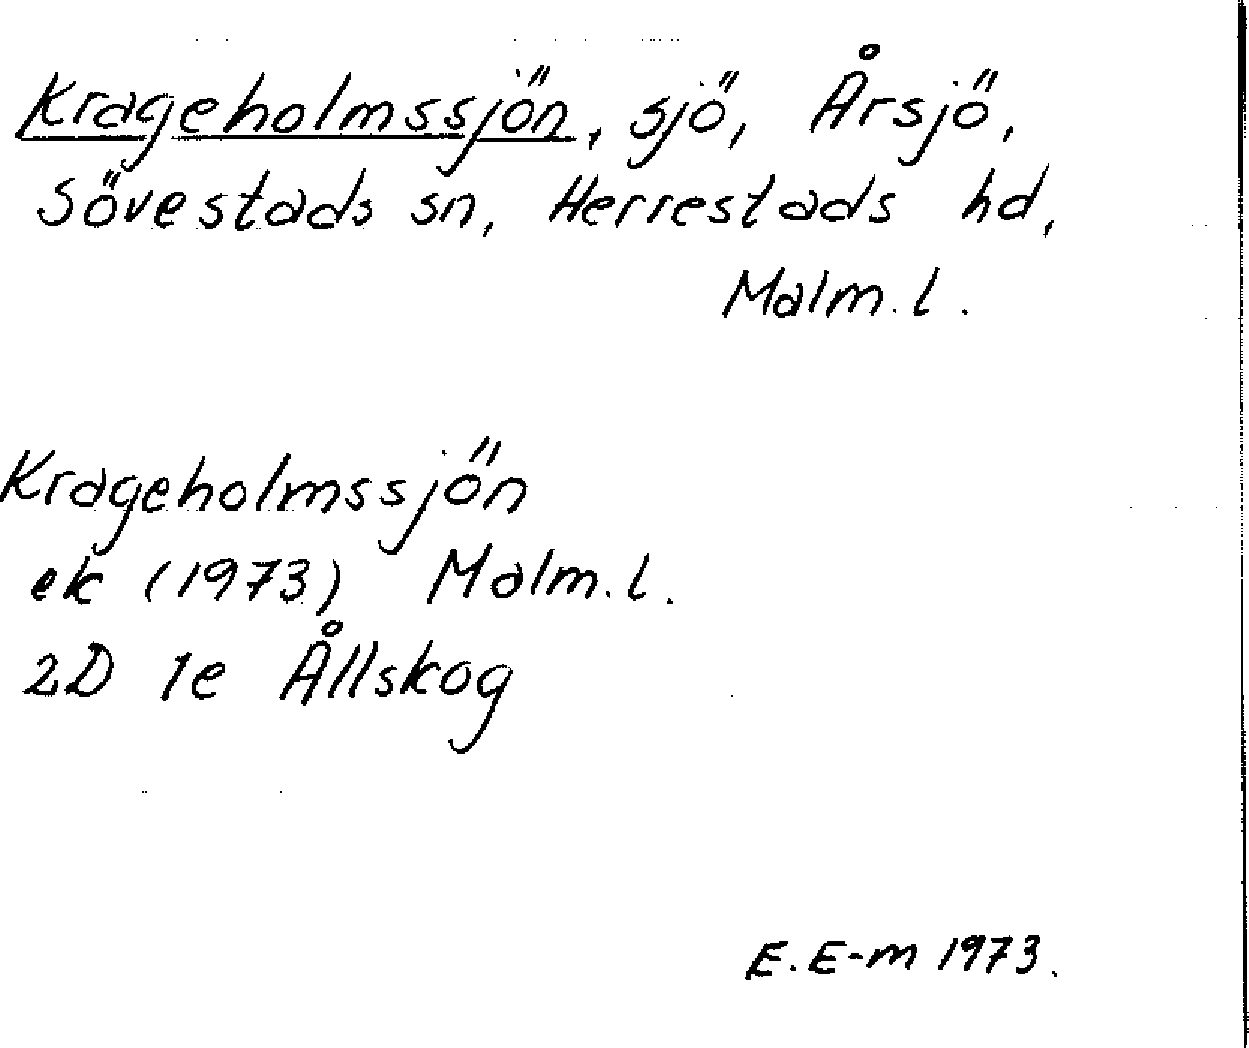 Krageholmssjön, sjö, Årsjö,
Sövestads sn, Herrestads hd,
Malm.l.
Krageholmssjön
ek (1973) Malm.l.
2D 1e Ållskog
E. E-m 1973.